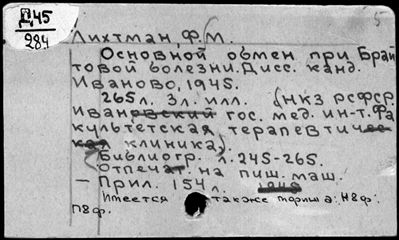 Д45
284
5
Лихтман, Ф. М.
Основной обмен при Брай
товой болезни. Дисс. канд.
Иваново, 1945.
265 л. 3 л. илл. (НКЗ РСФСР.
Ивановский гос. мед. ин-т. Фа
культетская терапевтичес
кая клиника).
Библиогр. л. 245-265.
Отпечат. на пиш. маш.
— Прил. 154 л. 1946
Имеется также
п8ф.